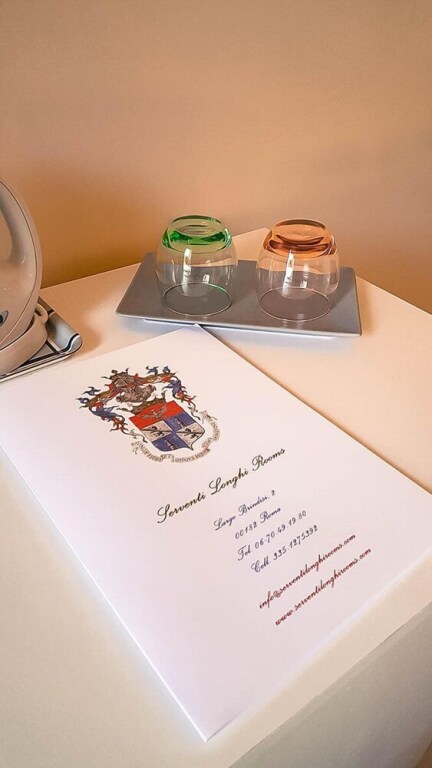 Serventi Longhi Rooms
Largo Brindisi, 2
00182 Roma
Tel. 06-70.49.19.80
Cell. 335-1275392
info@serventilonghirooms.com
www.serventilonghirooms.com